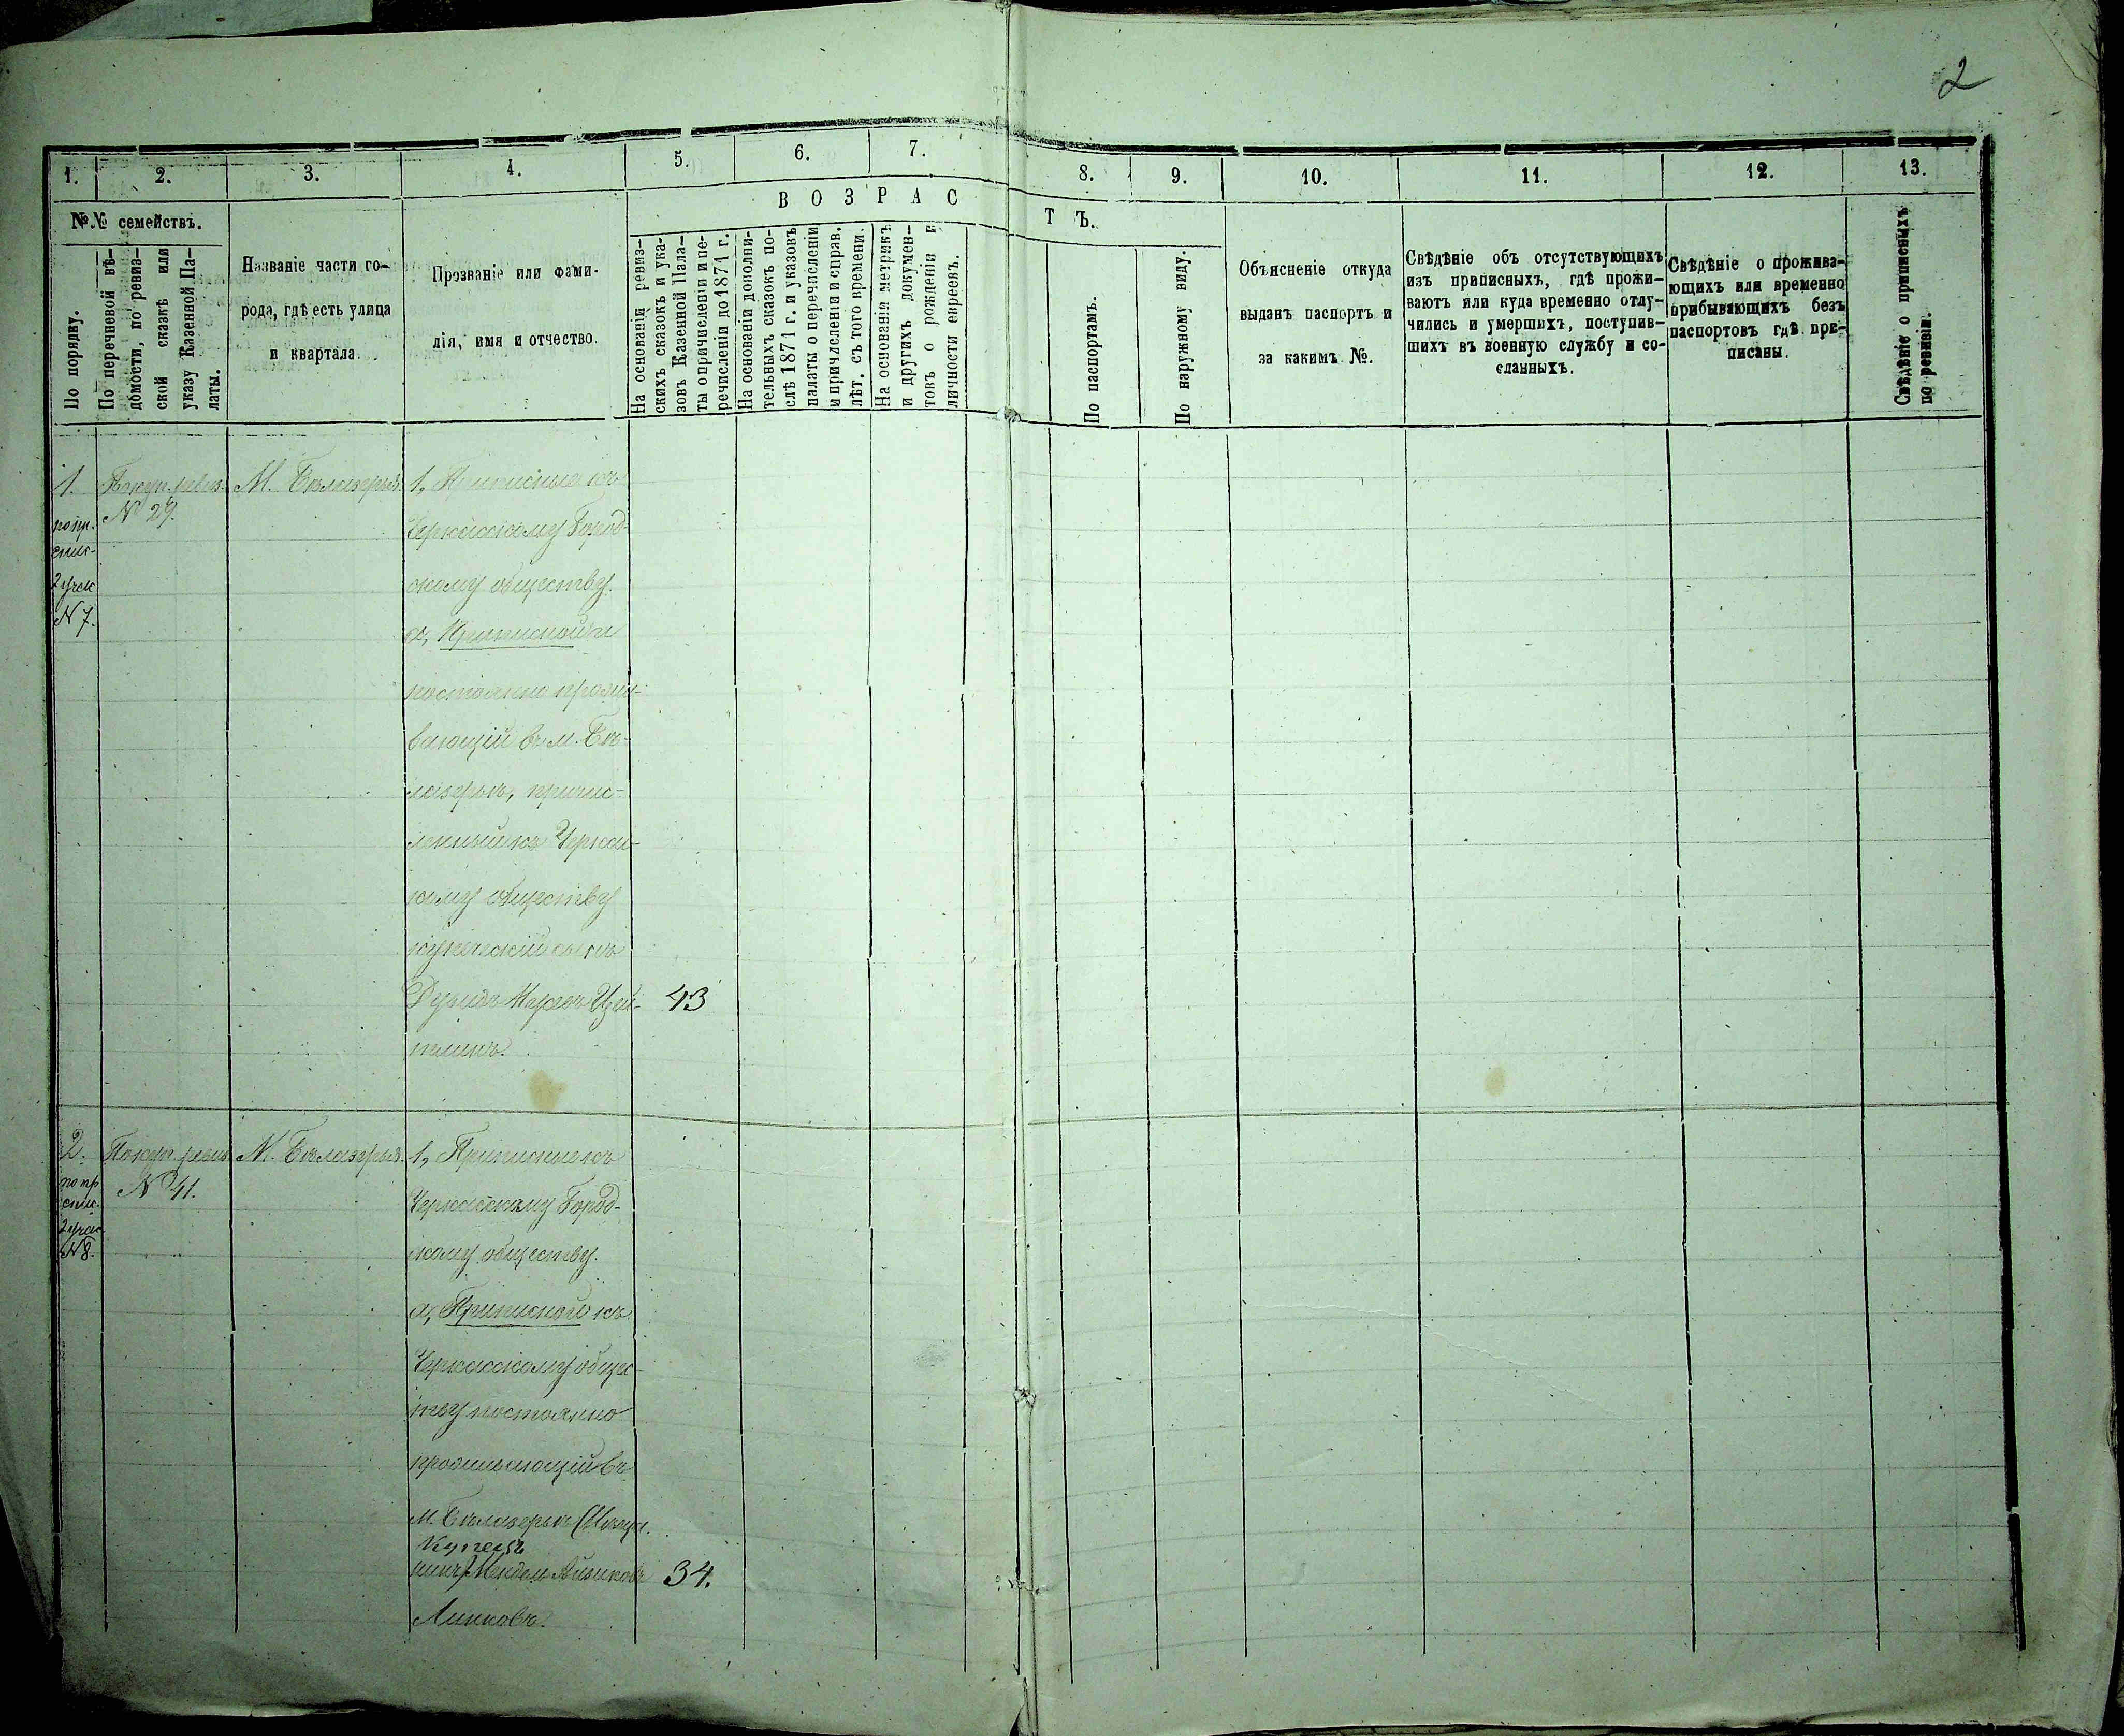 2
1. 2. 3. 4. 5. 6. 7. 8. 9. 10. 11. 12. 13.
№№ семействъ.
В О З Р А С Т Ъ.
По порядку.
По перечневой вѣ-
домости, по ревиз-
ской сказкѣ или
указу Казенной Па-
латы.
Названіе части го-
рода, гдѣ есть улица
и квартала.
Прозваніе или фами-
лія, имя и отчество.
На основаніи ревиз-
скихъ сказокъ и ука-
зовъ Казенной Пала-
ты о причисленіи и пе-
речисленіи до 1871 г.
На основаніи дополни-
тельныхъ сказокъ по-
слѣ 1871 г. и указовъ
палаты о перечисленіи
и причисленіи и справ.
лѣт. съ того времени.
На основаніи метрикъ
и другихъ докумен-
товъ о рожденіи и
личности евреевъ.
По паспортамъ.
По наружному виду.
Объясненіе откуда
выданъ паспортъ и
за какимъ №.
Свѣдѣніе объ отсутствующихъ
изъ приписныхъ, гдѣ прожи-
ваютъ или куда временно отлу-
чились и умершихъ, поступив-
шихъ въ военную службу и со-
сланныхъ.
Свѣдѣніе о прожива-
ющихъ или временно
прибывающихъ безъ
паспортовъ гдѣ при-
писаны.
Свѣдѣніе о приписныхъ
по ревизіи.
1.
по пр.
спис.
2 учас.
N 7.
По куп. ревиз.
N 29.
М. Бѣлозерье
1, Приписные къ
Черкасскому Город-
скому обществу.
а, Приписной и
постоянно прожи-
вающій въ м. Бѣ-
лозерьѣ, причис-
ленный къ Черкас-
кому обществу
купеческій сынъ
Дувидъ Цей- 43
тлинъ.
2.
по пр.
спис.
2 учас.
N 8.
По куп. ревиз.
N 41.
М. Бѣлозерье
1, Приписные къ
Черкасскому Город-
скому обществу.
а, Приписной къ
Черкасскому общес-
тву постоянно
проживающій въ
м. Бѣлозерьѣ (Мѣща-
Купецъ
нинъ) Мендель Айзиковъ 34.
Линковъ.